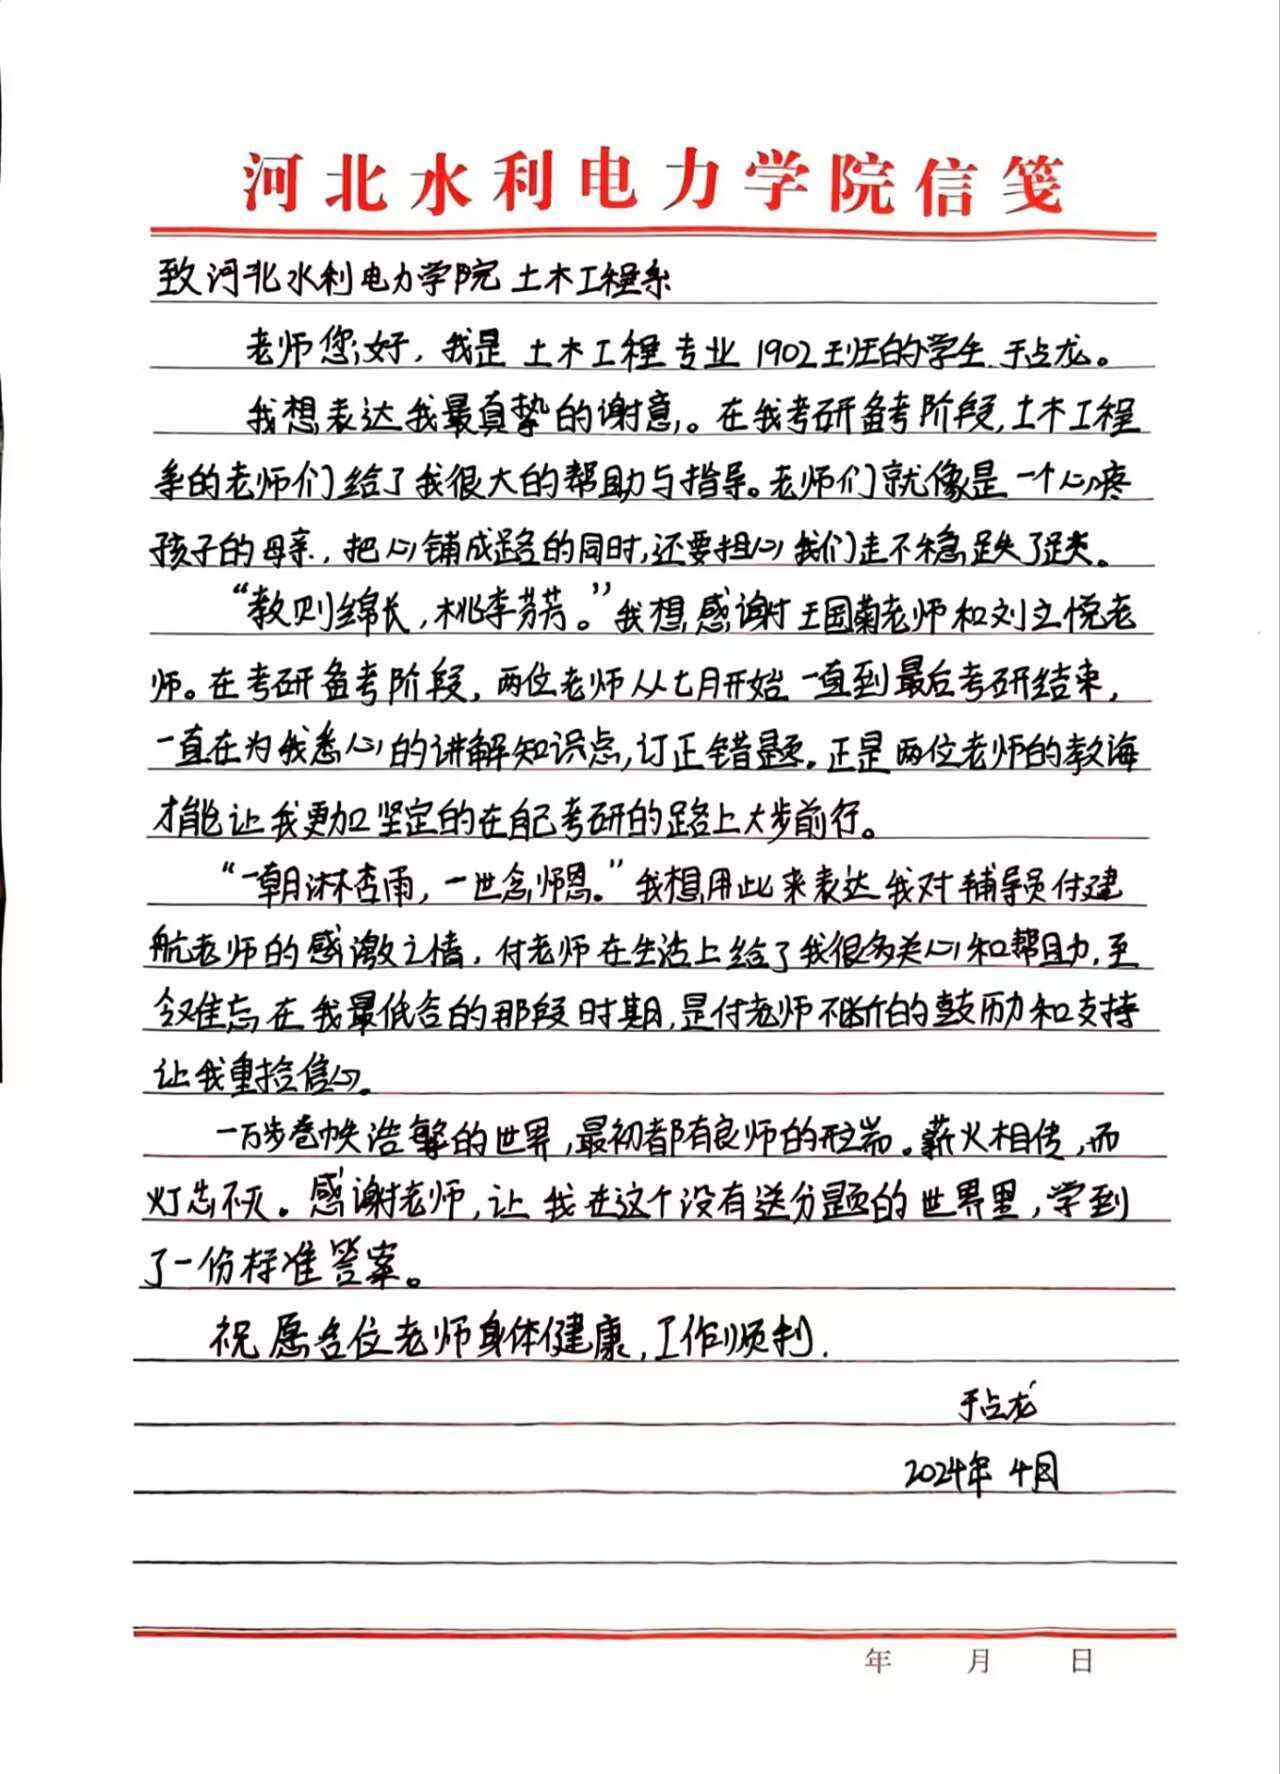 河北水利电力学院信笺
致河北水利电力学院土木工程系
老师您好，我是土木工程专业1902班的学生于占龙。
我想表达我最真挚的谢意。在我考研备考阶段，土木工程
系的老师们给了我很大的帮助与指导。老师们就像是一个心疼
孩子的母亲，把心铺成路的同时，还要担心我们走不稳跌了跤。
“教则绵长，桃李芬芳。”我想感谢王园菊老师和刘立悦老
师。在考研备考阶段，两位老师从七月开始一直到最后考研结束，
一直在为我悉心的讲解知识点，订正错题。正是两位老师的教诲
才能让我更加坚定的在自己考研的路上大步前行。
“一朝沐杏雨，一世念师恩。”我想用此来表达我对辅导员付建
航老师的感激之情，付老师在生活上给了我很多关心和帮助，至
今难忘在我最低谷的那段时期，是付老师不断的鼓励和支持
让我重拾信心。
一万步卷帙浩繁的世界，最初都有良师的开端。薪火相传，而
灯志不灭。感谢老师，让我在这个没有送分题的世界里，学到
了一份标准答案。
祝愿各位老师身体健康，工作顺利.
于占龙
2024年4月
年 月 日